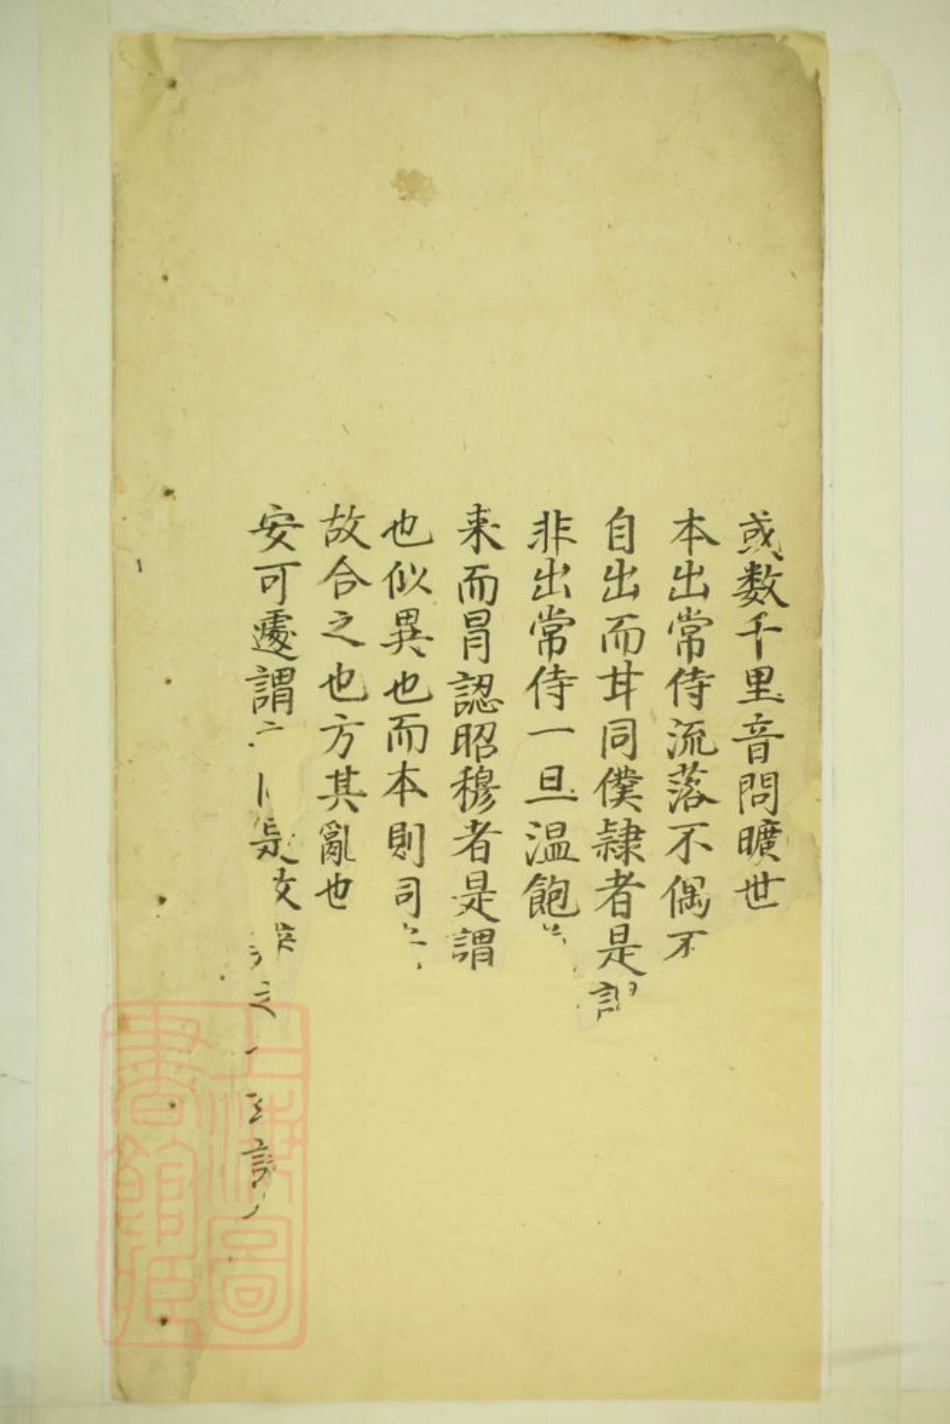 或数千里音問曠世
本出常侍流落不偶不
自出而甘同僕隷者是
非出常侍一旦温飽
来而冐認昭穆者是謂
也似異也而本則
故合之也方其亂也
安可遽謂
上海圖書館藏